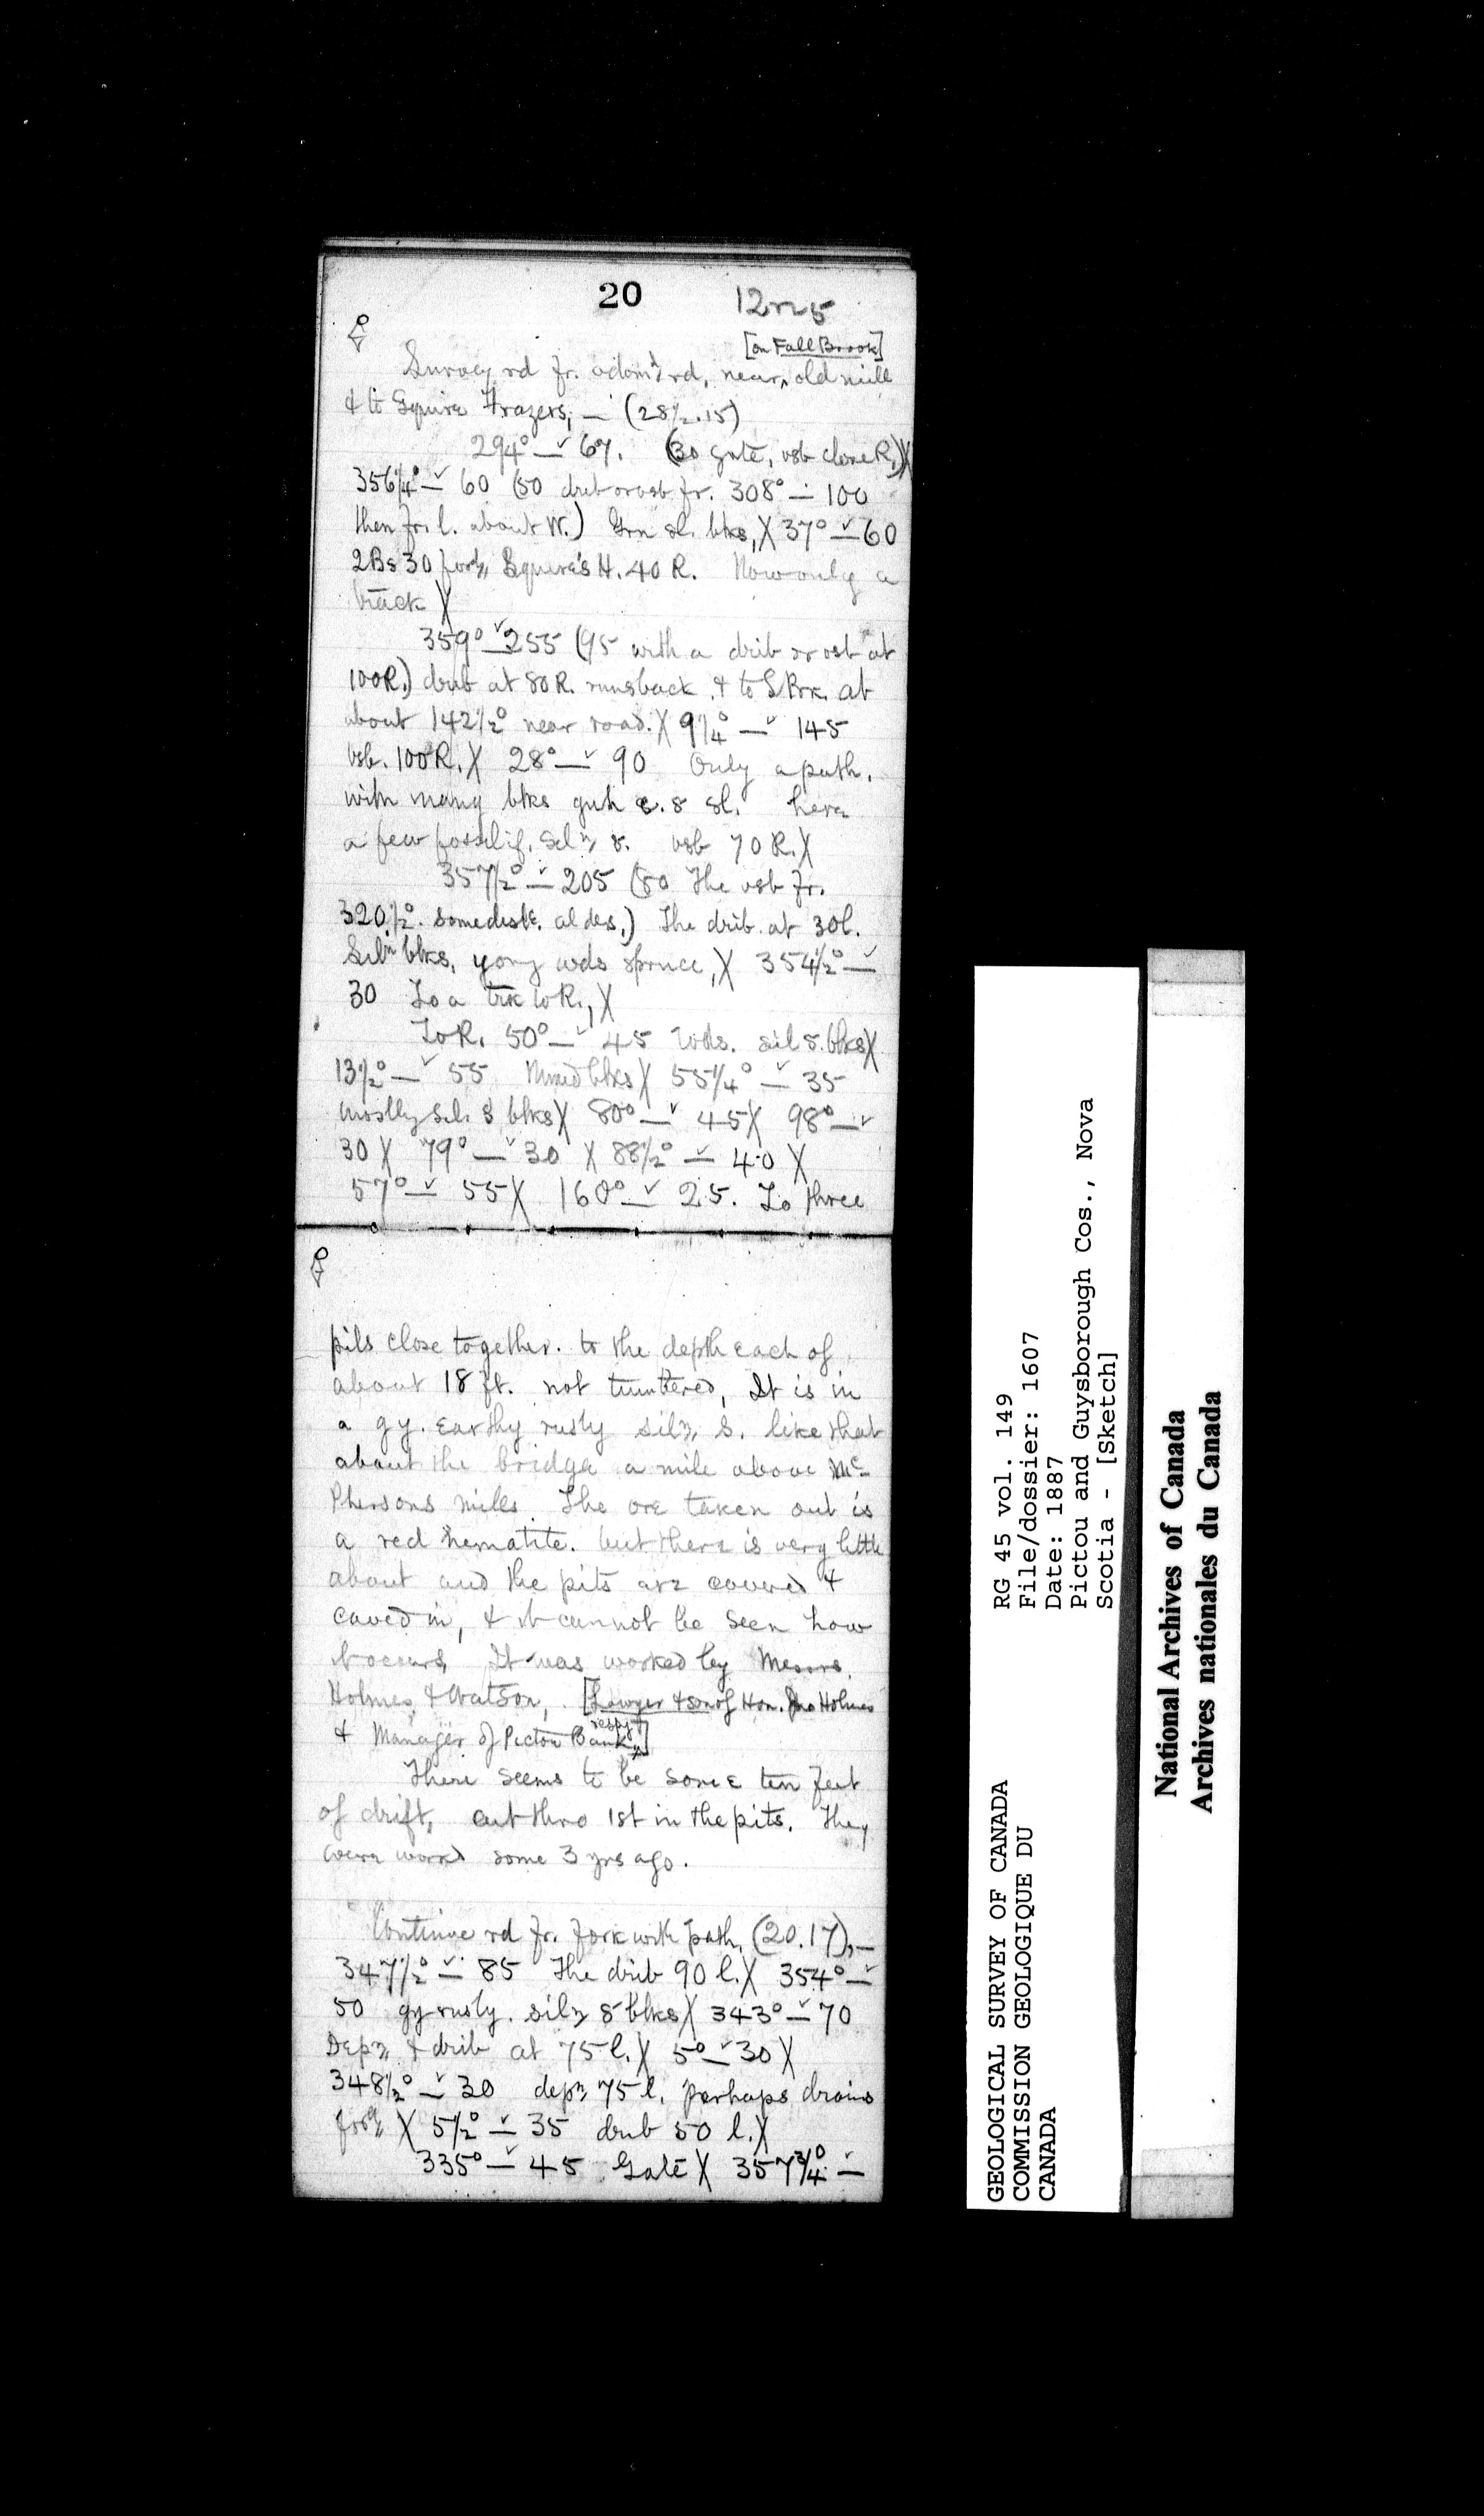 20
12 m 5
[on Fall Brook]
Survey rd fr. rd, near, old mill
& to Squire Frazers, — (28½.15)
294° — 67. (30 gate, vsb close R.) X
356¼° — 60 (50 drib or vsb fr. 308° — 100
then fr. l. about W.) Grn sl. blks, X 37° — 60
2Bs 30 Squire's H. 40 R. Now only a
track X
359° — 255 (95 with a drib or vsb at
100R.) drib at 80 R. runs back & to S Brk. at
about 142½° near road. X 9¼° — 145
vsb. 100 R. X 28° — 90 Only a path,
with many blks gnh c. s sl. here
a few fossilif. siln s. vsb 70 R. X
357½° — 205 (50 The vsb fr.
320½° some distc. alders.) The drib. at 30 l.
Siln blks, young wds spruce, X 354½° —
30 To a trk to R., X
To R. 50° — 45 Wds. sil s. blks X
13½° — 55 Mixed blks X 55¼° — 35
mostly sil. s blks X 80° — 45 X 98° —
30 X 79° — 30 X 88½° — 40 X
57° — 55 X 160° — 25. To three
pits close together. to the depth each of
about 18 ft. not timbered, It is in
a gy. earthy rusty siln s. like that
about the bridge a mile above Mc
Phersons mills. The ore taken out is
a red hematite. but there is very little
about and the pits are covered &
caved in, & it cannot be seen how
it occurs, It was worked by Messrs.
Holmes & Watson, [Lawyer & son of Hon. Jno Holmes
& Manager of Pictou Bank, respy]
There seems to be some ten feet
of drift, cut thro 1st in the pits. They
were workd some 3 yrs ago.
Continue rd fr. fork with path, (20.17), —
347½° — 85 The drib 90 l. X 354° —
50 gy rusty. siln s blks X 343° — 70
Depn & drib at 75 l. X 5° — 30 X
348½° — 30 depn 75 l. perhaps drains
X 5½° — 35 drib 50 l. X
335° — 45 Gate X 357¾° —
GEOLOGICAL SURVEY OF CANADA
COMMISSION GEOLOGIQUE DU
CANADA
RG 45 vol. 149
File/dossier: 1607
Date: 1887
Pictou and Guysborough Cos., Nova
Scotia - [Sketch]
National Archives of Canada
Archives nationales du Canada